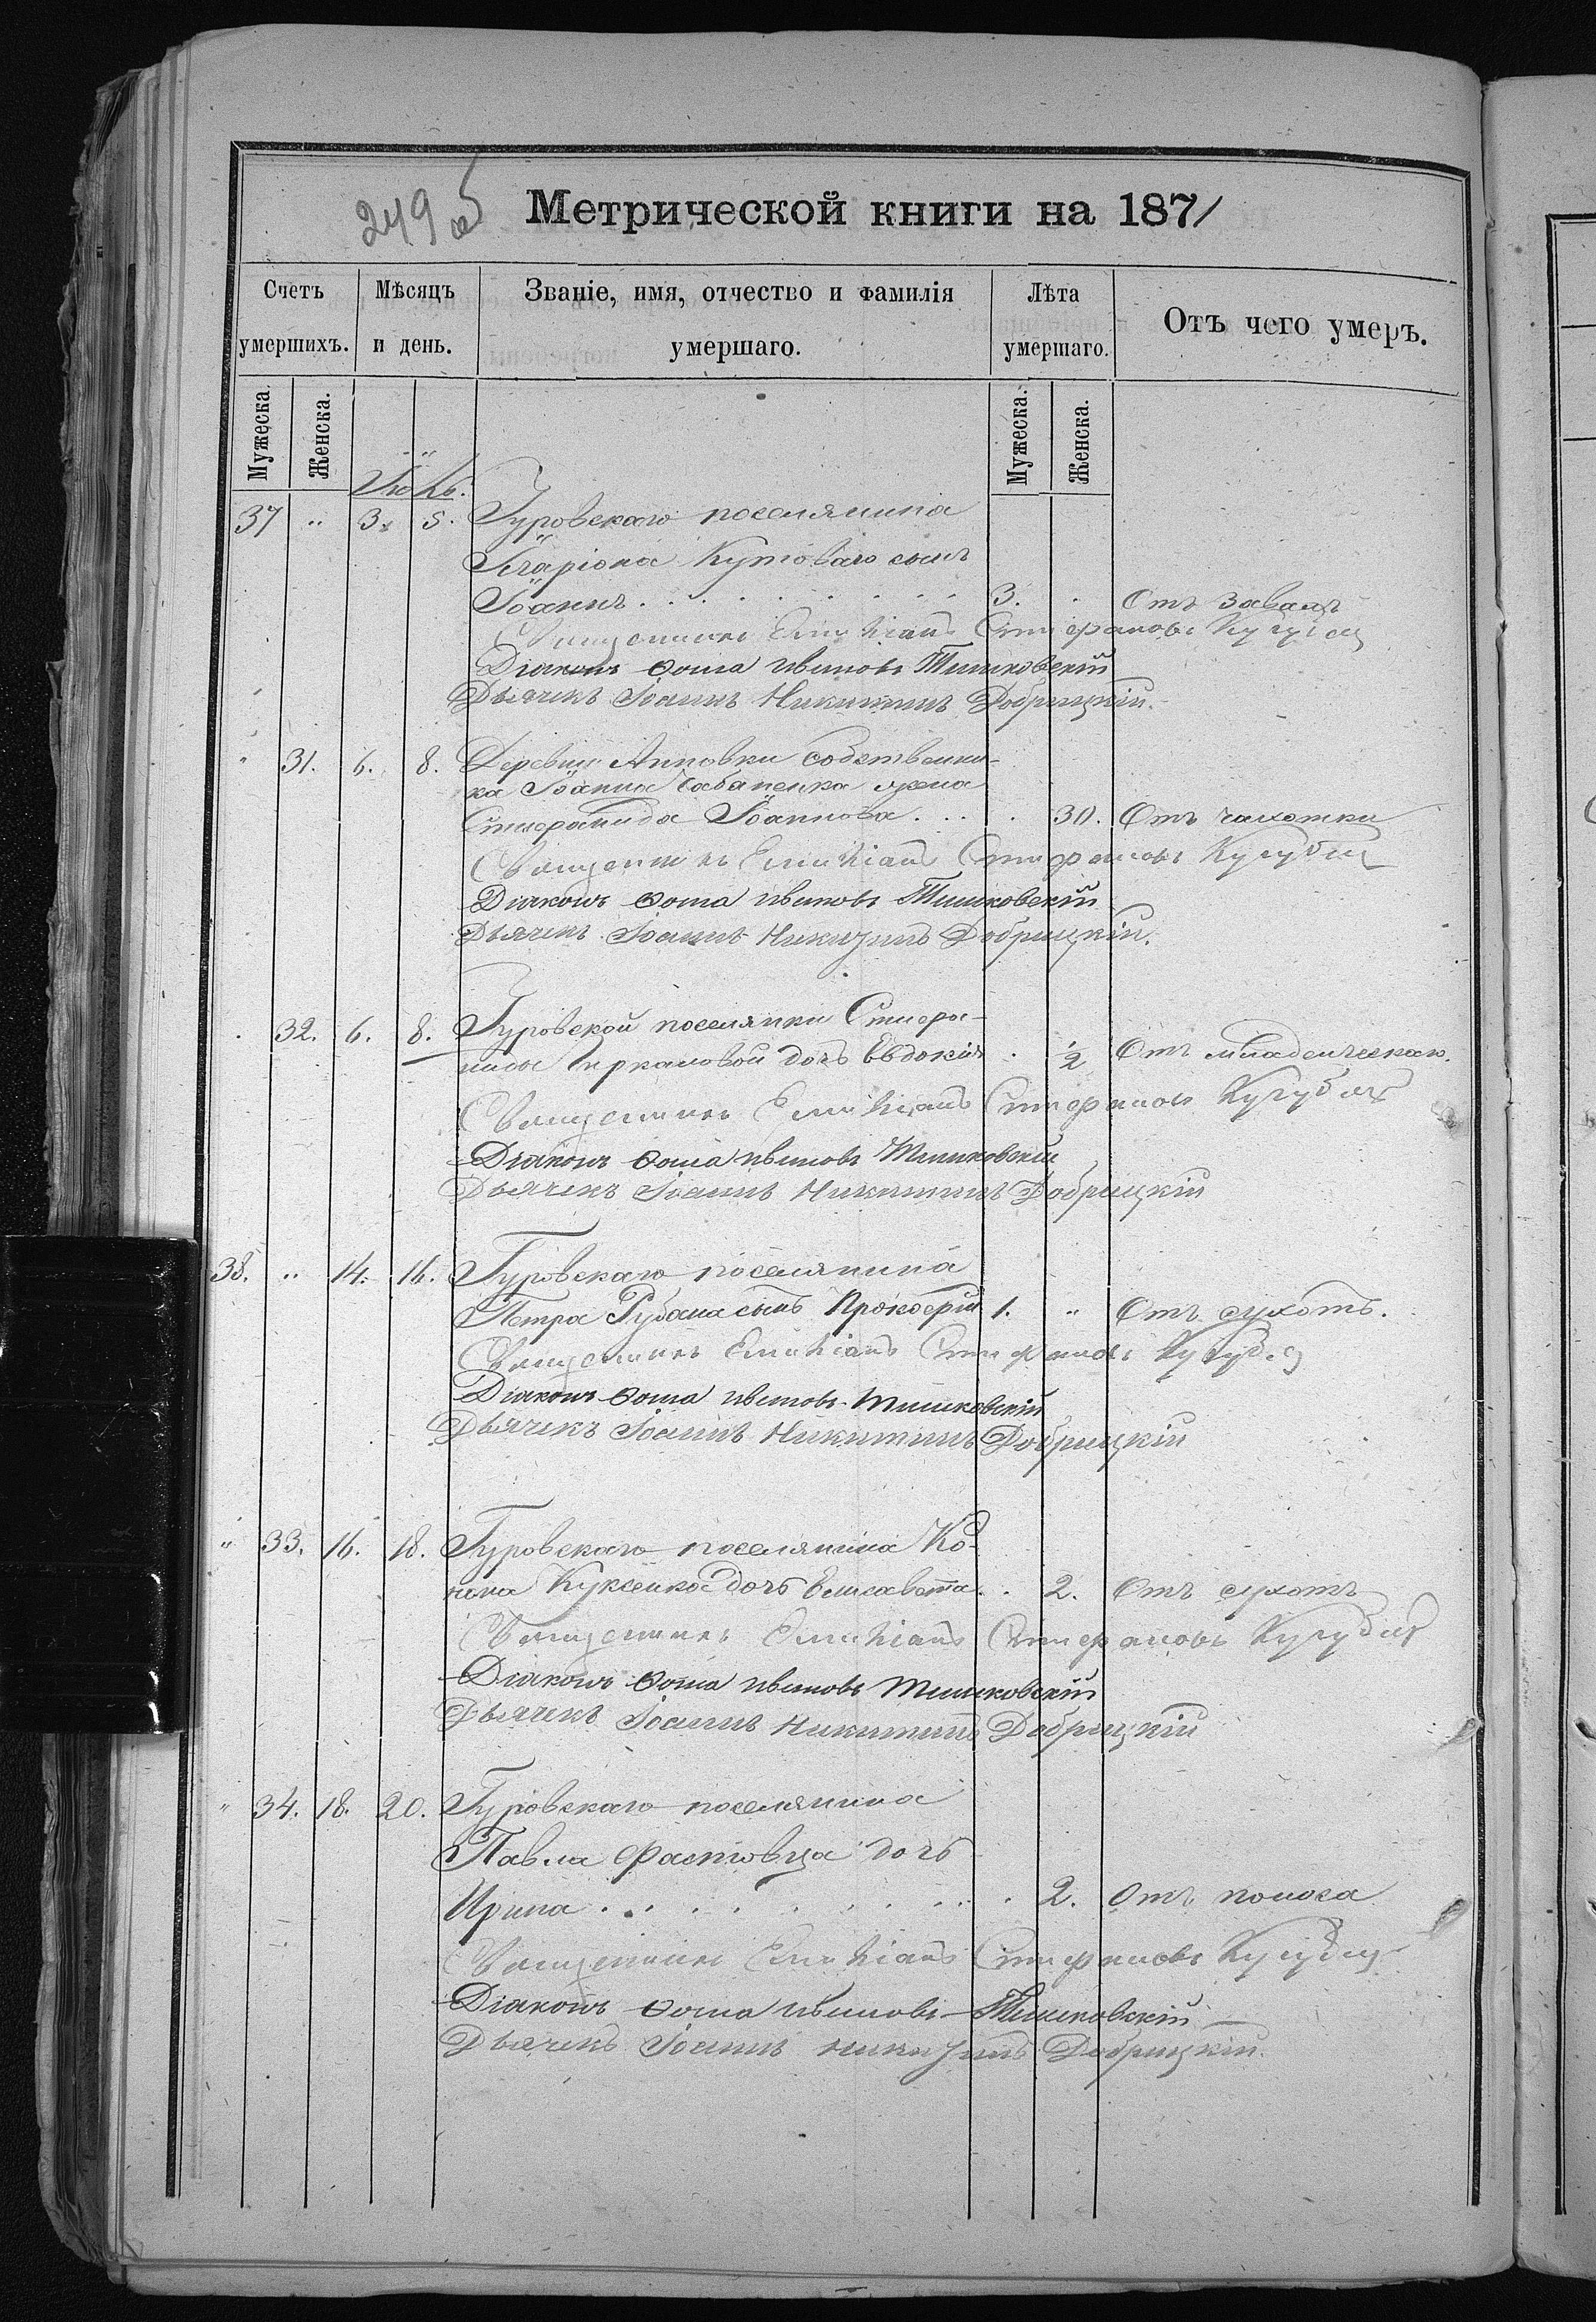 249 об
Метрической книги на 1871
Счетъ умершихъ.
Мѣсяцъ и день.
Званіе, имя, отчество и фамилія умершаго.
Лѣта умершаго.
Отъ чего умеръ.
Мужеска. Женска.
Мужеска. Женска.
Іюль.
37 " 3. 5. Гуровскаго поселянина
Иларіона Кутоваго сынъ
Іоаннъ . . . . . . . . . . 3. . Отъ завалъ
Священникъ Емиліанъ Стефановъ
Діаконъ Ѳома Ивановъ Тишковскій
Дьячекъ Іоаннъ Никитинъ Добрицкій.
" 31. 6. 8. Деревни Анновки собственни-
ка Іоанна Чабаненка жена
Стефанида Іоаннова . . . . 30. Отъ чахотки
Священникъ Емиліанъ Стефановъ
Діаконъ Ѳома Ивановъ Тишковскій
Дьячекъ Іоаннъ Никитинъ Добрицкій.
. 32. 6. 8. Гуровской поселянки Стефа-
ниды дочь Евдокія . 1/2 Отъ младенческаго.
Священникъ Емиліанъ Стефановъ
Діаконъ Ѳома Ивановъ Тишковскій
Дьячекъ Іоаннъ Никитинъ Добрицкій
38. " 14. 16. Гуровскаго поселянина
Петра Рубана сынъ Прокофій 1. " Отъ сухотъ.
Священникъ Емиліанъ Стефановъ
Діаконъ Ѳома Ивановъ Тишковскій
Дьячекъ Іоаннъ Никитинъ Добрицкій
" 33. 16. 18. Гуровскаго поселянина Ко-
нона Куксенка дочь Елисавета . . 2. Отъ сухотъ
Священникъ Емиліанъ Стефановъ
Діаконъ Ѳома Ивановъ Тишковскій
Дьячекъ Іоаннъ Никитинъ Добрицкій
" 34. 18. 20. Гуровскаго поселянина
Павла Фастовца дочь
Ирина . . . . . . . . . . . 2. Отъ поноса
Священникъ Емиліанъ Стефановъ
Діаконъ Ѳома Ивановъ Тишковскій
Дьячекъ Іоаннъ Никитинъ Добрицкій.